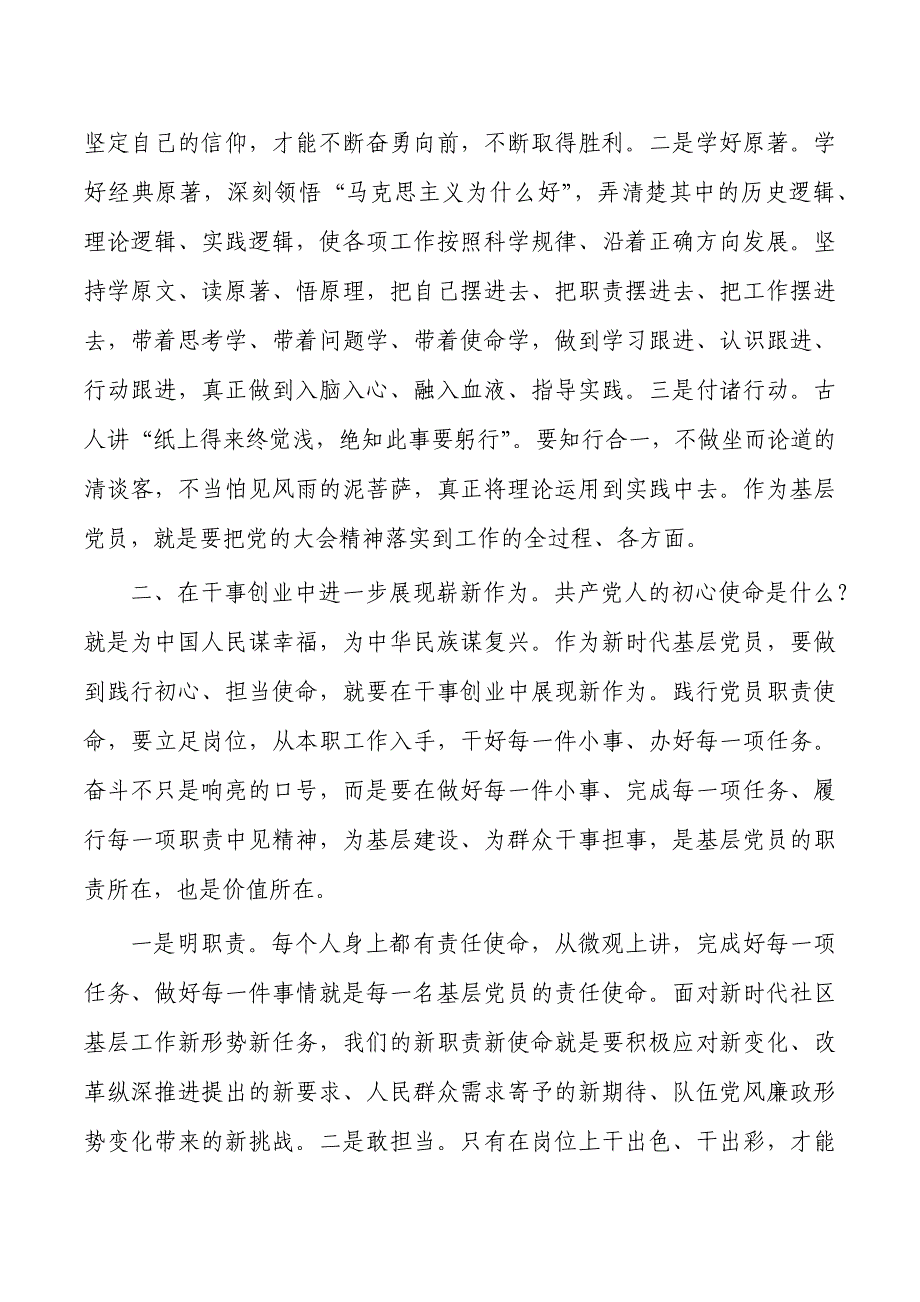 坚定自己的信仰，才能不断奋勇向前，不断取得胜利。二是学好原著。学
好经典原著，深刻领悟“马克思主义为什么好”，弄清楚其中的历史逻辑、
理论逻辑、实践逻辑，使各项工作按照科学规律、沿着正确方向发展。坚
持学原文、读原著、悟原理，把自己摆进去、把职责摆进去、把工作摆进
去，带着思考学、带着问题学、带着使命学，做到学习跟进、认识跟进、
行动跟进，真正做到入脑入心、融入血液、指导实践。三是付诸行动。古
人讲“纸上得来终觉浅，绝知此事要躬行”。要知行合一，不做坐而论道的
清谈客，不当怕见风雨的泥菩萨，真正将理论运用到实践中去。作为基层
党员，就是要把党的大会精神落实到工作的全过程、各方面。
二、在干事创业中进一步展现崭新作为。共产党人的初心使命是什么？
就是为中国人民谋幸福，为中华民族谋复兴。作为新时代基层党员，要做
到践行初心、担当使命，就要在干事创业中展现新作为。践行党员职责使
命，要立足岗位，从本职工作入手，干好每一件小事、办好每一项任务。
奋斗不只是响亮的口号，而是要在做好每一件小事、完成每一项任务、履
行每一项职责中见精神，为基层建设、为群众干事担事，是基层党员的职
责所在，也是价值所在。
一是明职责。每个人身上都有责任使命，从微观上讲，完成好每一项
任务、做好每一件事情就是每一名基层党员的责任使命。面对新时代社区
基层工作新形势新任务，我们的新职责新使命就是要积极应对新变化、改
革纵深推进提出的新要求、人民群众需求寄予的新期待、队伍党风廉政形
势变化带来的新挑战。二是敢担当。只有在岗位上干出色、干出彩，才能